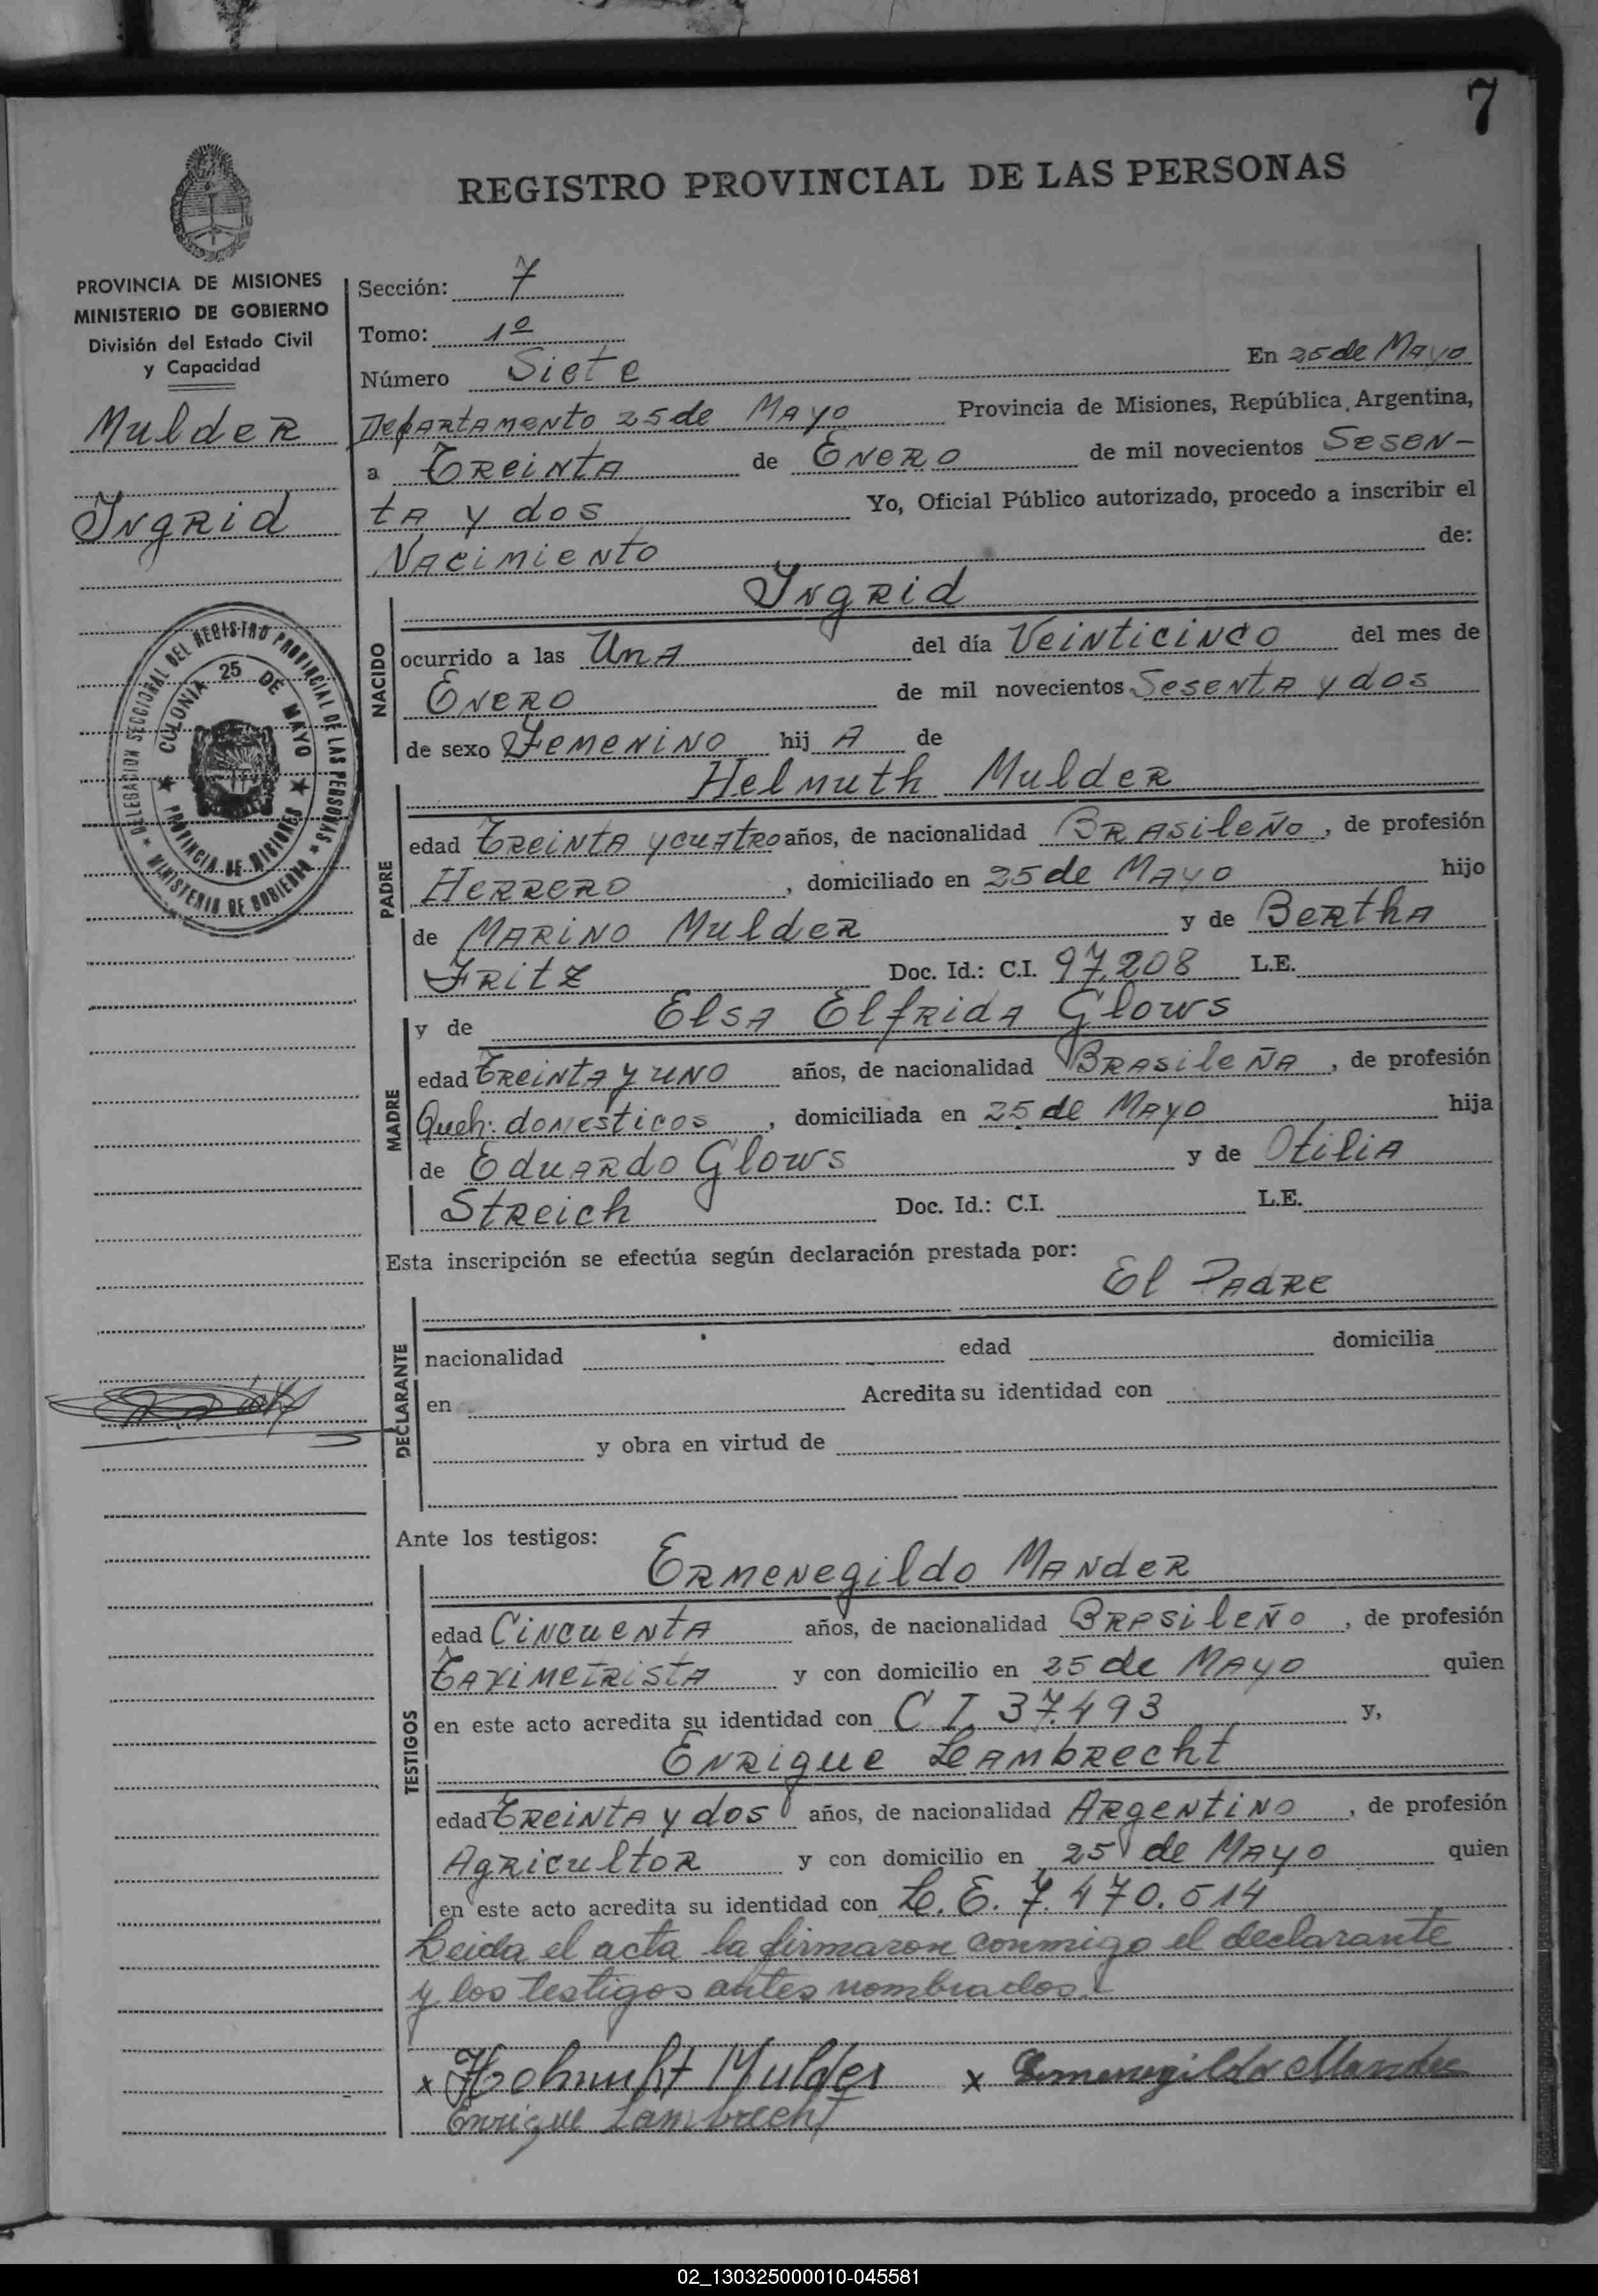 7
REGISTRO PROVINCIAL DE LAS PERSONAS
PROVINCIA DE MISIONES
MINISTERIO DE GOBIERNO
División del Estado Civil
y Capacidad
Mulder
Ingrid
DELEGACION SECCIONAL DEL REGISTRO PROVINCIAL DE LAS PERSONAS
★ MINISTERIO DE GOBIERNO ★
COLONIA 25 DE MAYO
★ PROVINCIA DE MISIONES ★
Sección: 7
Tomo: 1º
Número Siete En 25 de Mayo
Departamento 25 de Mayo Provincia de Misiones, República Argentina,
a Treinta de Enero de mil novecientos Sesen-
ta y dos Yo, Oficial Público autorizado, procedo a inscribir el
Nacimiento de:
NACIDO
Ingrid
ocurrido a las Una del día Veinticinco del mes de
Enero de mil novecientos Sesenta y dos
de sexo Femenino hij a de
PADRE
Helmuth Mulder
edad Treinta y cuatro años, de nacionalidad Brasileño, de profesión
Herrero, domiciliado en 25 de Mayo hijo
de Marino Mulder y de Bertha
Fritz Doc. Id.: C.I. 97.208 L.E.
MADRE
y de Elsa Elfrida Glows
edad Treinta y uno años, de nacionalidad Brasileña, de profesión
Queh: domesticos, domiciliada en 25 de Mayo hija
de Eduardo Glows y de Otilia
Streich Doc. Id.: C.I. L.E.
Esta inscripción se efectúa según declaración prestada por:
El Padre
DECLARANTE
nacionalidad edad domicilia
en Acredita su identidad con
y obra en virtud de
Ante los testigos:
TESTIGOS
Ermenegildo Mander
edad Cincuenta años, de nacionalidad Brasileño, de profesión
Taximetrista y con domicilio en 25 de Mayo quien
en este acto acredita su identidad con C I 37.493 y,
Enrique Lambrecht
edad Treinta y dos años, de nacionalidad Argentino, de profesión
Agricultor y con domicilio en 25 de Mayo quien
en este acto acredita su identidad con L. E. 7.470.514
Leida el acta la firmaron conmigo el declarante
y los testigos antes nombrados.
x Helmuht Mulder x Ermenegildo Mander
Enrique Lambrecht
02_130325000010-045581